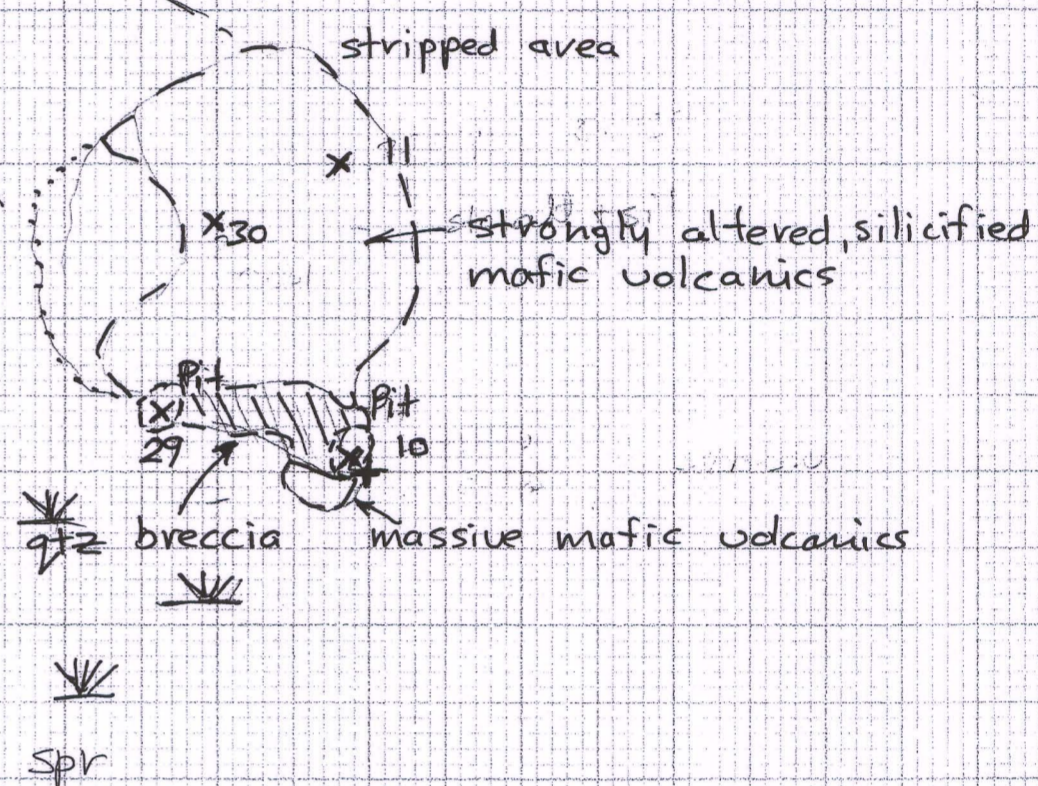 stripped area
11
30
strongly altered, silicified
mafic volcanics
Pit
Pit
29
10
qtz breccia
massive mafic volcanics
spr